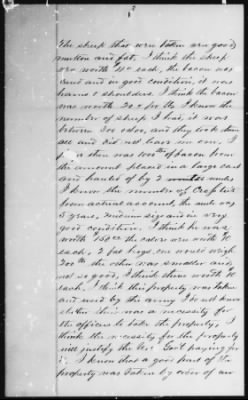 The sheep that were taken are good
mutton and fat, I think the sheep
are worth each, the bacon was
cured and in good condition, it was
hams & shoulders. I think the bacon
was worth 20 c per lb I know the
number of sheep I had, it was
between 300 odor, and they took them
all and did not leave me one, I
think there was of bacon from
the amount placed in a large cart
and hauled of by 2 mules
I know the number of
from actual account, the mule was
5 years, medium size and in very
good condition. I think he was
worth 150 the calves were worth
each, 2 fat hogs one would weigh
200 lb the other was smaller and
not so good, I think them worth 10
each, I think this property was taken
and used by the army I do not know
whether there was a necessity for
the officers to take the property, I
think the necessity for the property
will justify the Govt paying for
it. I know that a good part of the
property was taken by order of an